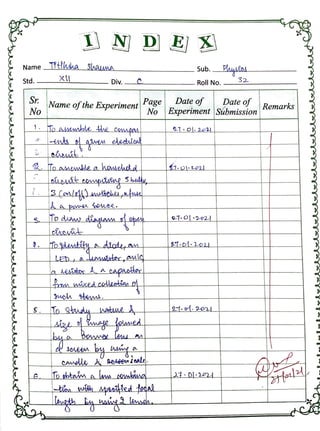 INDEX
Name Titiksha Sharma Sub. Physics
Std. XII Div. C Roll No. 32
Sr. No Name of the Experiment Page No Date of Experiment Date of Submission Remarks
1. To assemble the compon 27-01-2021
-ents of given electrical
circuit.
2. To assemble a household 27-01-2021
circuit comprising 3 bulbs,
3 (on/off) switches, a fuse
& a power source.
3. To draw diagram of open 27-01-2021
circuit
4. To identify a diode, an 27-01-2021
LED, a transistor, an IC
a resistor & a capacitor
from mixed collection of
such items.
5. To study nature & 27-01-2021
size of image formed
by a lens on
a screen by using a
candle & screen
6. To obtain a lens combina 27-01-2021
-tion with specified focal
length by using 2 lenses.